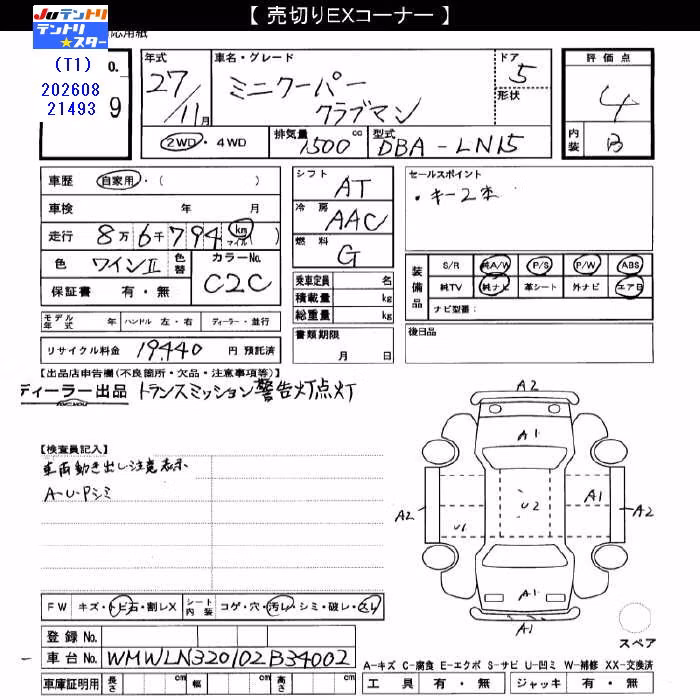 【 売切りEXコーナー 】
JUテントリ
テントリ★スター
応用紙
(T1) o.
202608
21493 9
年式 車名・グレード ドア 評価点
27/11月 ミニクーパー クラブマン 5 4
形状
2WD・4WD 排気量 1500cc 型式 DBA-LN15 内装 B
車歴 自家用・( )
車検 年 月
走行 8万6千794 km マイル( )
色 ワインII 色替 カラーNo. C2C
保証書 有・無
シフト AT
冷房 AAC
燃料 G
セールスポイント
・キー2本
乗車定員 名
積載量 kg
総重量 kg
装備品 S/R 純A/W P/S P/W ABS
純TV 純ナビ 革シート 外ナビ エアB
ナビ型番:
モデル年式 年 ハンドル 左・右 ディーラー・並行
リサイクル料金 19440 円 預託済
書類期限 月 日
後日品
【出品店申告欄(不良箇所・欠品・注意事項等)】
ディーラー出品 トランスミッション警告灯点灯
【検査員記入】
車両動き出し注意表示
A-U-Pシミ
A2
A1
U2
A1
A2
U1
A2
A1
A1
FW キズ・トビ石・割レX シート内装 コゲ・穴・汚レ・シミ・破レ・スレ
登録No.
車台No. WMWLN320102B34002
車庫証明用 長さ cm 幅 cm 高さ cm
スペア
A-キズ C-腐食 E-エクボ S-サビ U-凹ミ W-補修 XX-交換済
工具 有・無 ジャッキ 有・無